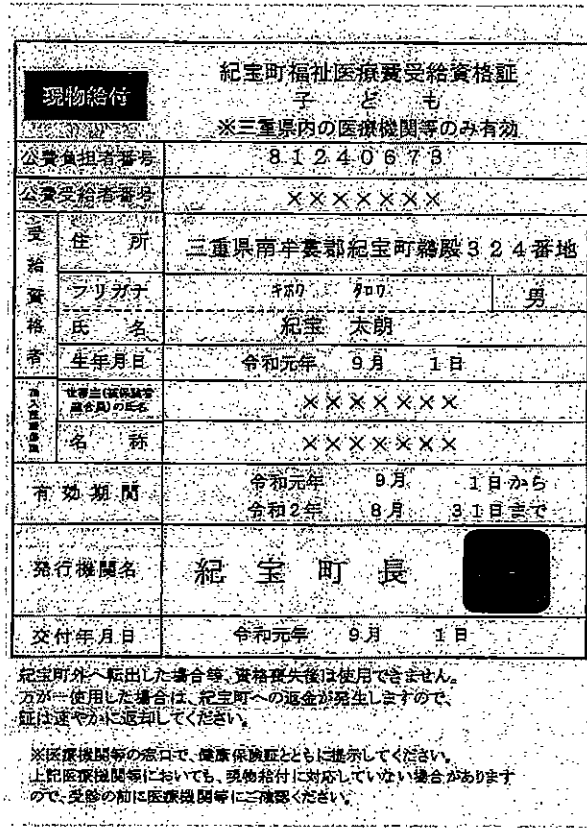 現物給付
紀宝町福祉医療費受給資格証
子ども
※三重県内の医療機関等のみ有効
公費負担者番号 81240673
公費受給者番号 ×××××××
受給資格者
住所 三重県南牟婁郡紀宝町鵜殿324番地
フリガナ キホウ タロウ 男
氏名 紀宝 太朗
生年月日 令和元年 9月 1日
世帯主(被保険者組合員)の氏名 ×××××××
名称 ×××××××
有効期間 令和元年 9月 1日から
令和2年 8月 31日まで
発行機関名 紀宝町長
交付年月日 令和元年 9月 1日
紀宝町外へ転出した場合等、資格喪失後は使用できません。
万が一使用した場合は、紀宝町への返金が発生しますので、
証は速やかに返却してください。
※医療機関等の窓口で、健康保険証とともに提示してください。
上記医療機関等においても、現物給付に対応していない場合があります
ので、受診の前に医療機関等にご確認ください。